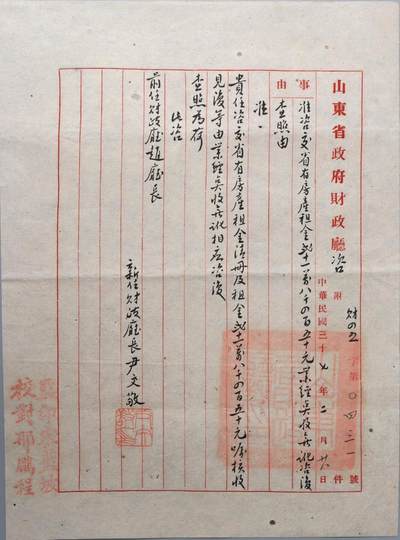 山東省政府財政廳咨
附件
財四丑字第〇四三一號
中華民國三十七年二月廿八日
事由
准咨交省有房產租金
萬八千四百五十元業經
收
訖咨復
查照由
准
貴任咨交省有房產租金清冊及租金
萬八千四百五十元囑核收
見復等由業經
收
訖相應咨復
查照為荷
此咨
前任財政廳趙廳長
新任財政廳長尹文敬
校對邢鵬程